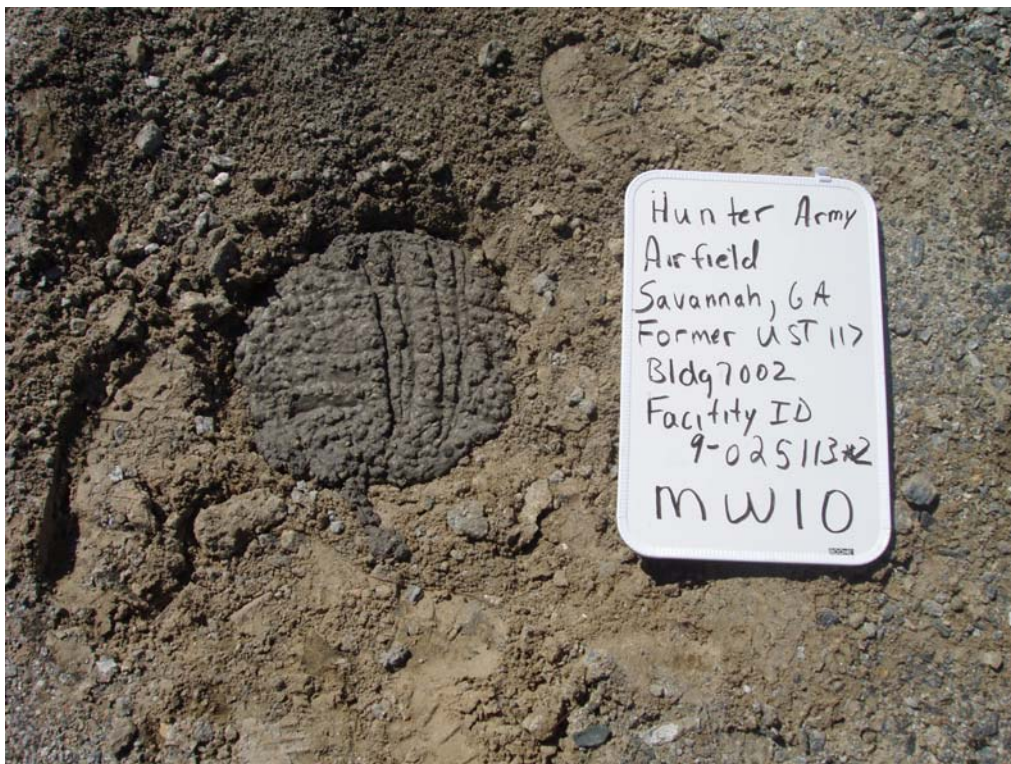 Hunter Army
Airfield
Savannah, GA
Former UST 117
Bldg 7002
Facitity ID
9-025113*2
MW10